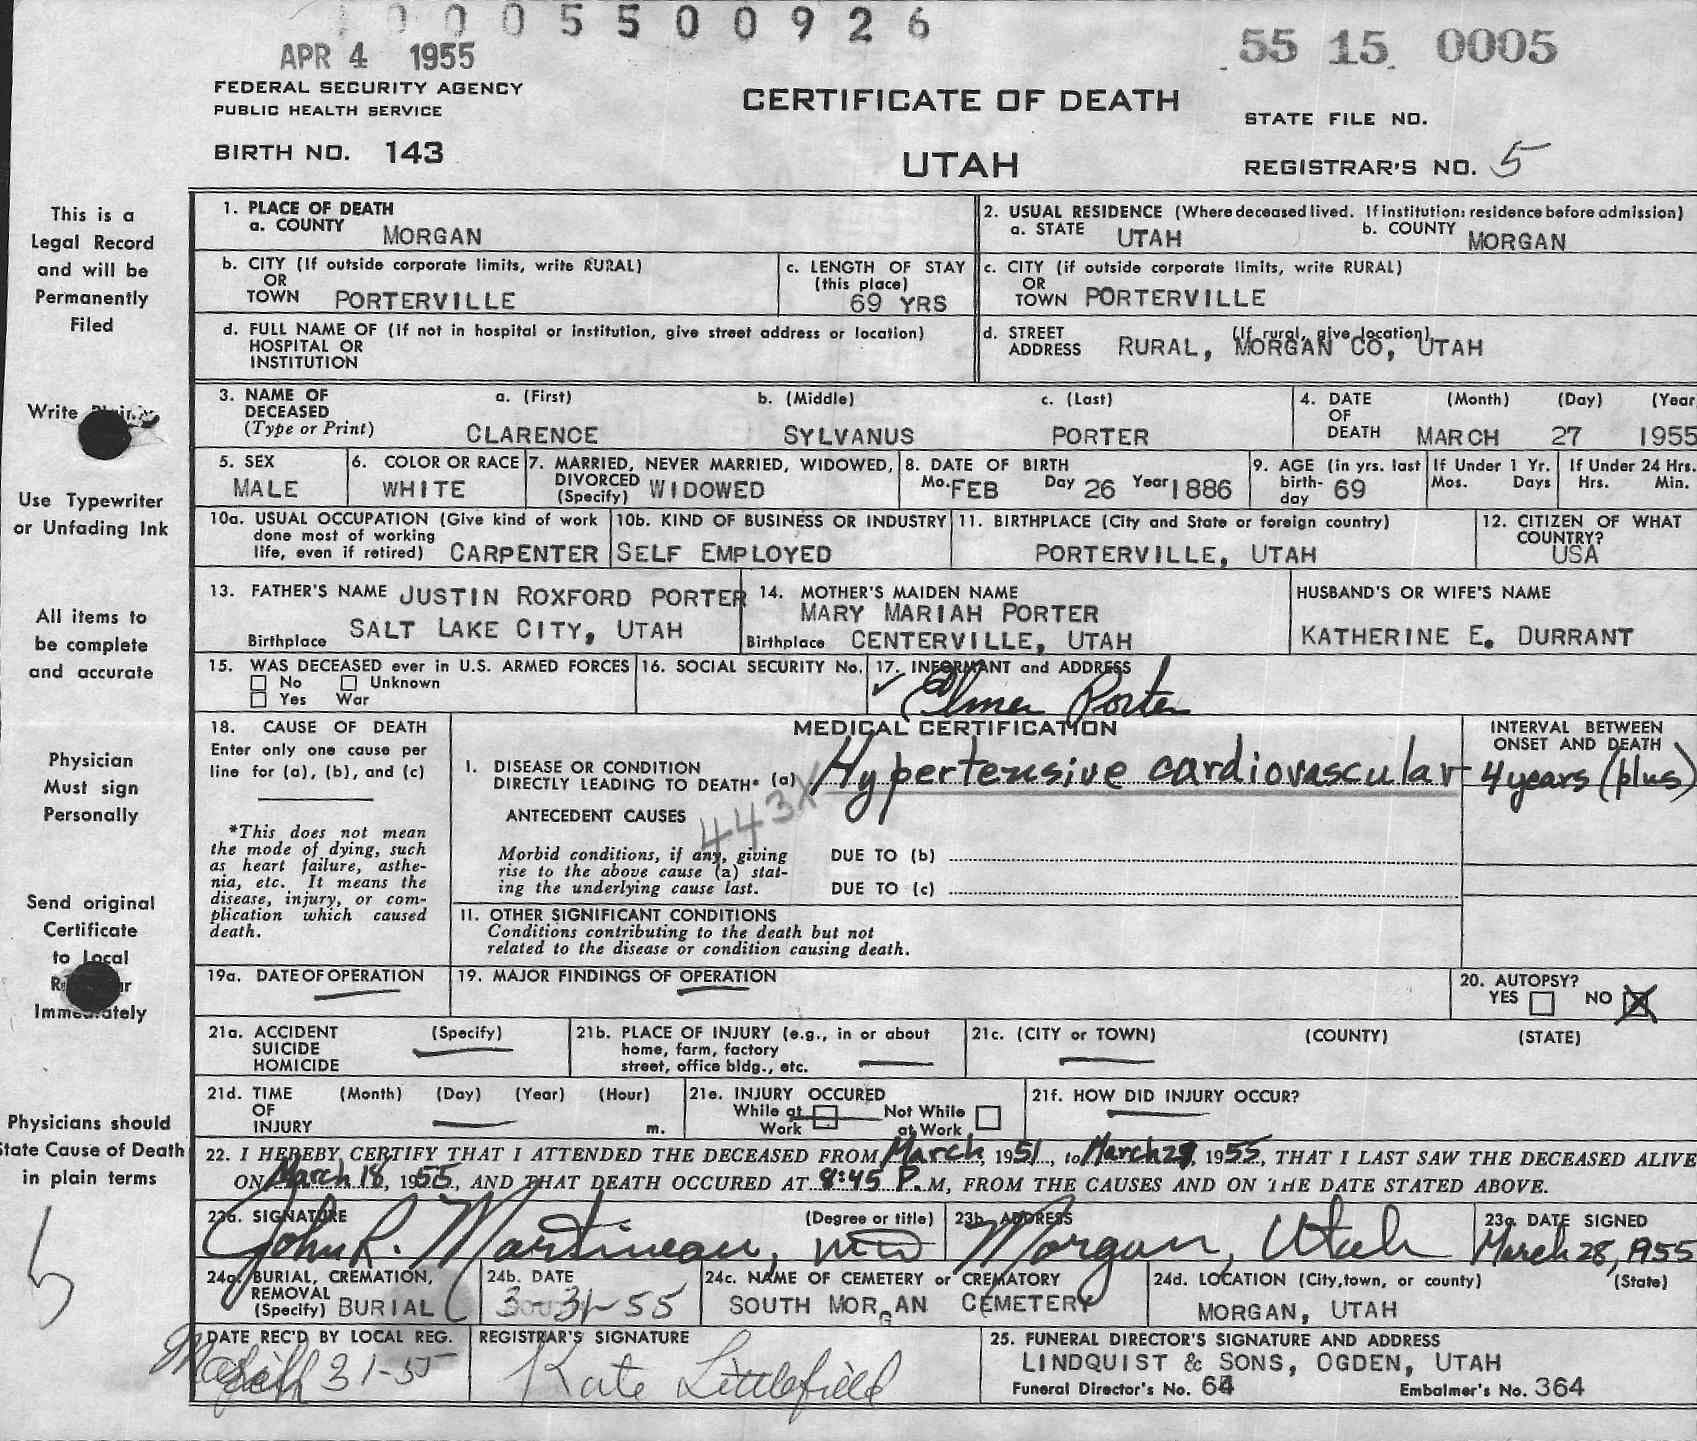 10005500926
APR 4 1955
55 15 0005
FEDERAL SECURITY AGENCY
PUBLIC HEALTH SERVICE
CERTIFICATE OF DEATH
STATE FILE NO.
BIRTH NO. 143
UTAH
REGISTRAR'S NO. 5
This is a
Legal Record
and will be
Permanently
Filed
Write
Use Typewriter
or Unfading Ink
All items to
be complete
and accurate
Physician
Must sign
Personally
Send original
Certificate
to Local
Immediately
Physicians should
State Cause of Death
in plain terms
5
1. PLACE OF DEATH
a. COUNTY MORGAN
2. USUAL RESIDENCE (Where deceased lived. If institution: residence before admission)
a. STATE UTAH b. COUNTY MORGAN
b. CITY (If outside corporate limits, write RURAL)
OR
TOWN PORTERVILLE
c. LENGTH OF STAY
(this place)
69 YRS
c. CITY (if outside corporate limits, write RURAL)
OR
TOWN PORTERVILLE
d. FULL NAME OF (If not in hospital or institution, give street address or location)
HOSPITAL OR
INSTITUTION
d. STREET (If rural, give location)
ADDRESS RURAL, MORGAN CO, UTAH
3. NAME OF
DECEASED
(Type or Print)
a. (First) b. (Middle) c. (Last)
CLARENCE SYLVANUS PORTER
4. DATE
OF
DEATH
(Month) (Day) (Year
MARCH 27 1955
5. SEX
MALE
6. COLOR OR RACE
WHITE
7. MARRIED, NEVER MARRIED, WIDOWED,
DIVORCED
(Specify) WIDOWED
8. DATE OF BIRTH
Mo. FEB Day 26 Year 1886
9. AGE (in yrs. last
birth-
day 69
If Under 1 Yr.
Mos. Days
If Under 24 Hrs.
Hrs. Min.
10a. USUAL OCCUPATION (Give kind of work
done most of working
life, even if retired) CARPENTER
10b. KIND OF BUSINESS OR INDUSTRY
SELF EMPLOYED
11. BIRTHPLACE (City and State or foreign country)
PORTERVILLE, UTAH
12. CITIZEN OF WHAT
COUNTRY?
USA
13. FATHER'S NAME JUSTIN ROXFORD PORTER
Birthplace SALT LAKE CITY, UTAH
14. MOTHER'S MAIDEN NAME
MARY MARIAH PORTER
Birthplace CENTERVILLE, UTAH
HUSBAND'S OR WIFE'S NAME
KATHERINE E. DURRANT
15. WAS DECEASED ever in U.S. ARMED FORCES
No Unknown
Yes War
16. SOCIAL SECURITY No.
17. INFORMANT and ADDRESS
Elmer Porter
18. CAUSE OF DEATH
Enter only one cause per
line for (a), (b), and (c)
*This does not mean
the mode of dying, such
as heart failure, asthe-
nia, etc. It means the
disease, injury, or com-
plication which caused
death.
MEDICAL CERTIFICATION
I. DISEASE OR CONDITION
DIRECTLY LEADING TO DEATH* (a) Hypertensive cardiovascular
443X
ANTECEDENT CAUSES
Morbid conditions, if any, giving
rise to the above cause (a) stat-
ing the underlying cause last.
DUE TO (b)
DUE TO (c)
II. OTHER SIGNIFICANT CONDITIONS
Conditions contributing to the death but not
related to the disease or condition causing death.
INTERVAL BETWEEN
ONSET AND DEATH
4 years (plus)
19a. DATE OF OPERATION
19. MAJOR FINDINGS OF OPERATION
20. AUTOPSY?
YES NO X
21a. ACCIDENT (Specify)
SUICIDE
HOMICIDE
21b. PLACE OF INJURY (e.g., in or about
home, farm, factory
street, office bldg., etc.
21c. (CITY or TOWN) (COUNTY) (STATE)
21d. TIME (Month) (Day) (Year) (Hour)
OF
INJURY m.
21e. INJURY OCCURED
While at Not While
Work at Work
21f. HOW DID INJURY OCCUR?
22. I HEREBY CERTIFY THAT I ATTENDED THE DECEASED FROM March, 1951, to March 28, 1955, THAT I LAST SAW THE DECEASED ALIVE
ON March 18, 1955, AND THAT DEATH OCCURED AT 8:45 P.M, FROM THE CAUSES AND ON THE DATE STATED ABOVE.
23a. SIGNATURE (Degree or title)
John R. Martineau, MD
23b. ADDRESS
Morgan, Utah
23c. DATE SIGNED
March 28, 1955
24a. BURIAL, CREMATION,
REMOVAL
(Specify) BURIAL
24b. DATE
3-31-55
24c. NAME OF CEMETERY or CREMATORY
SOUTH MORGAN CEMETERY
24d. LOCATION (City, town, or county) (State)
MORGAN, UTAH
DATE REC'D BY LOCAL REG.
March 31-55
REGISTRAR'S SIGNATURE
Kate Littlefield
25. FUNERAL DIRECTOR'S SIGNATURE AND ADDRESS
LINDQUIST & SONS, OGDEN, UTAH
Funeral Director's No. 64 Embalmer's No. 364